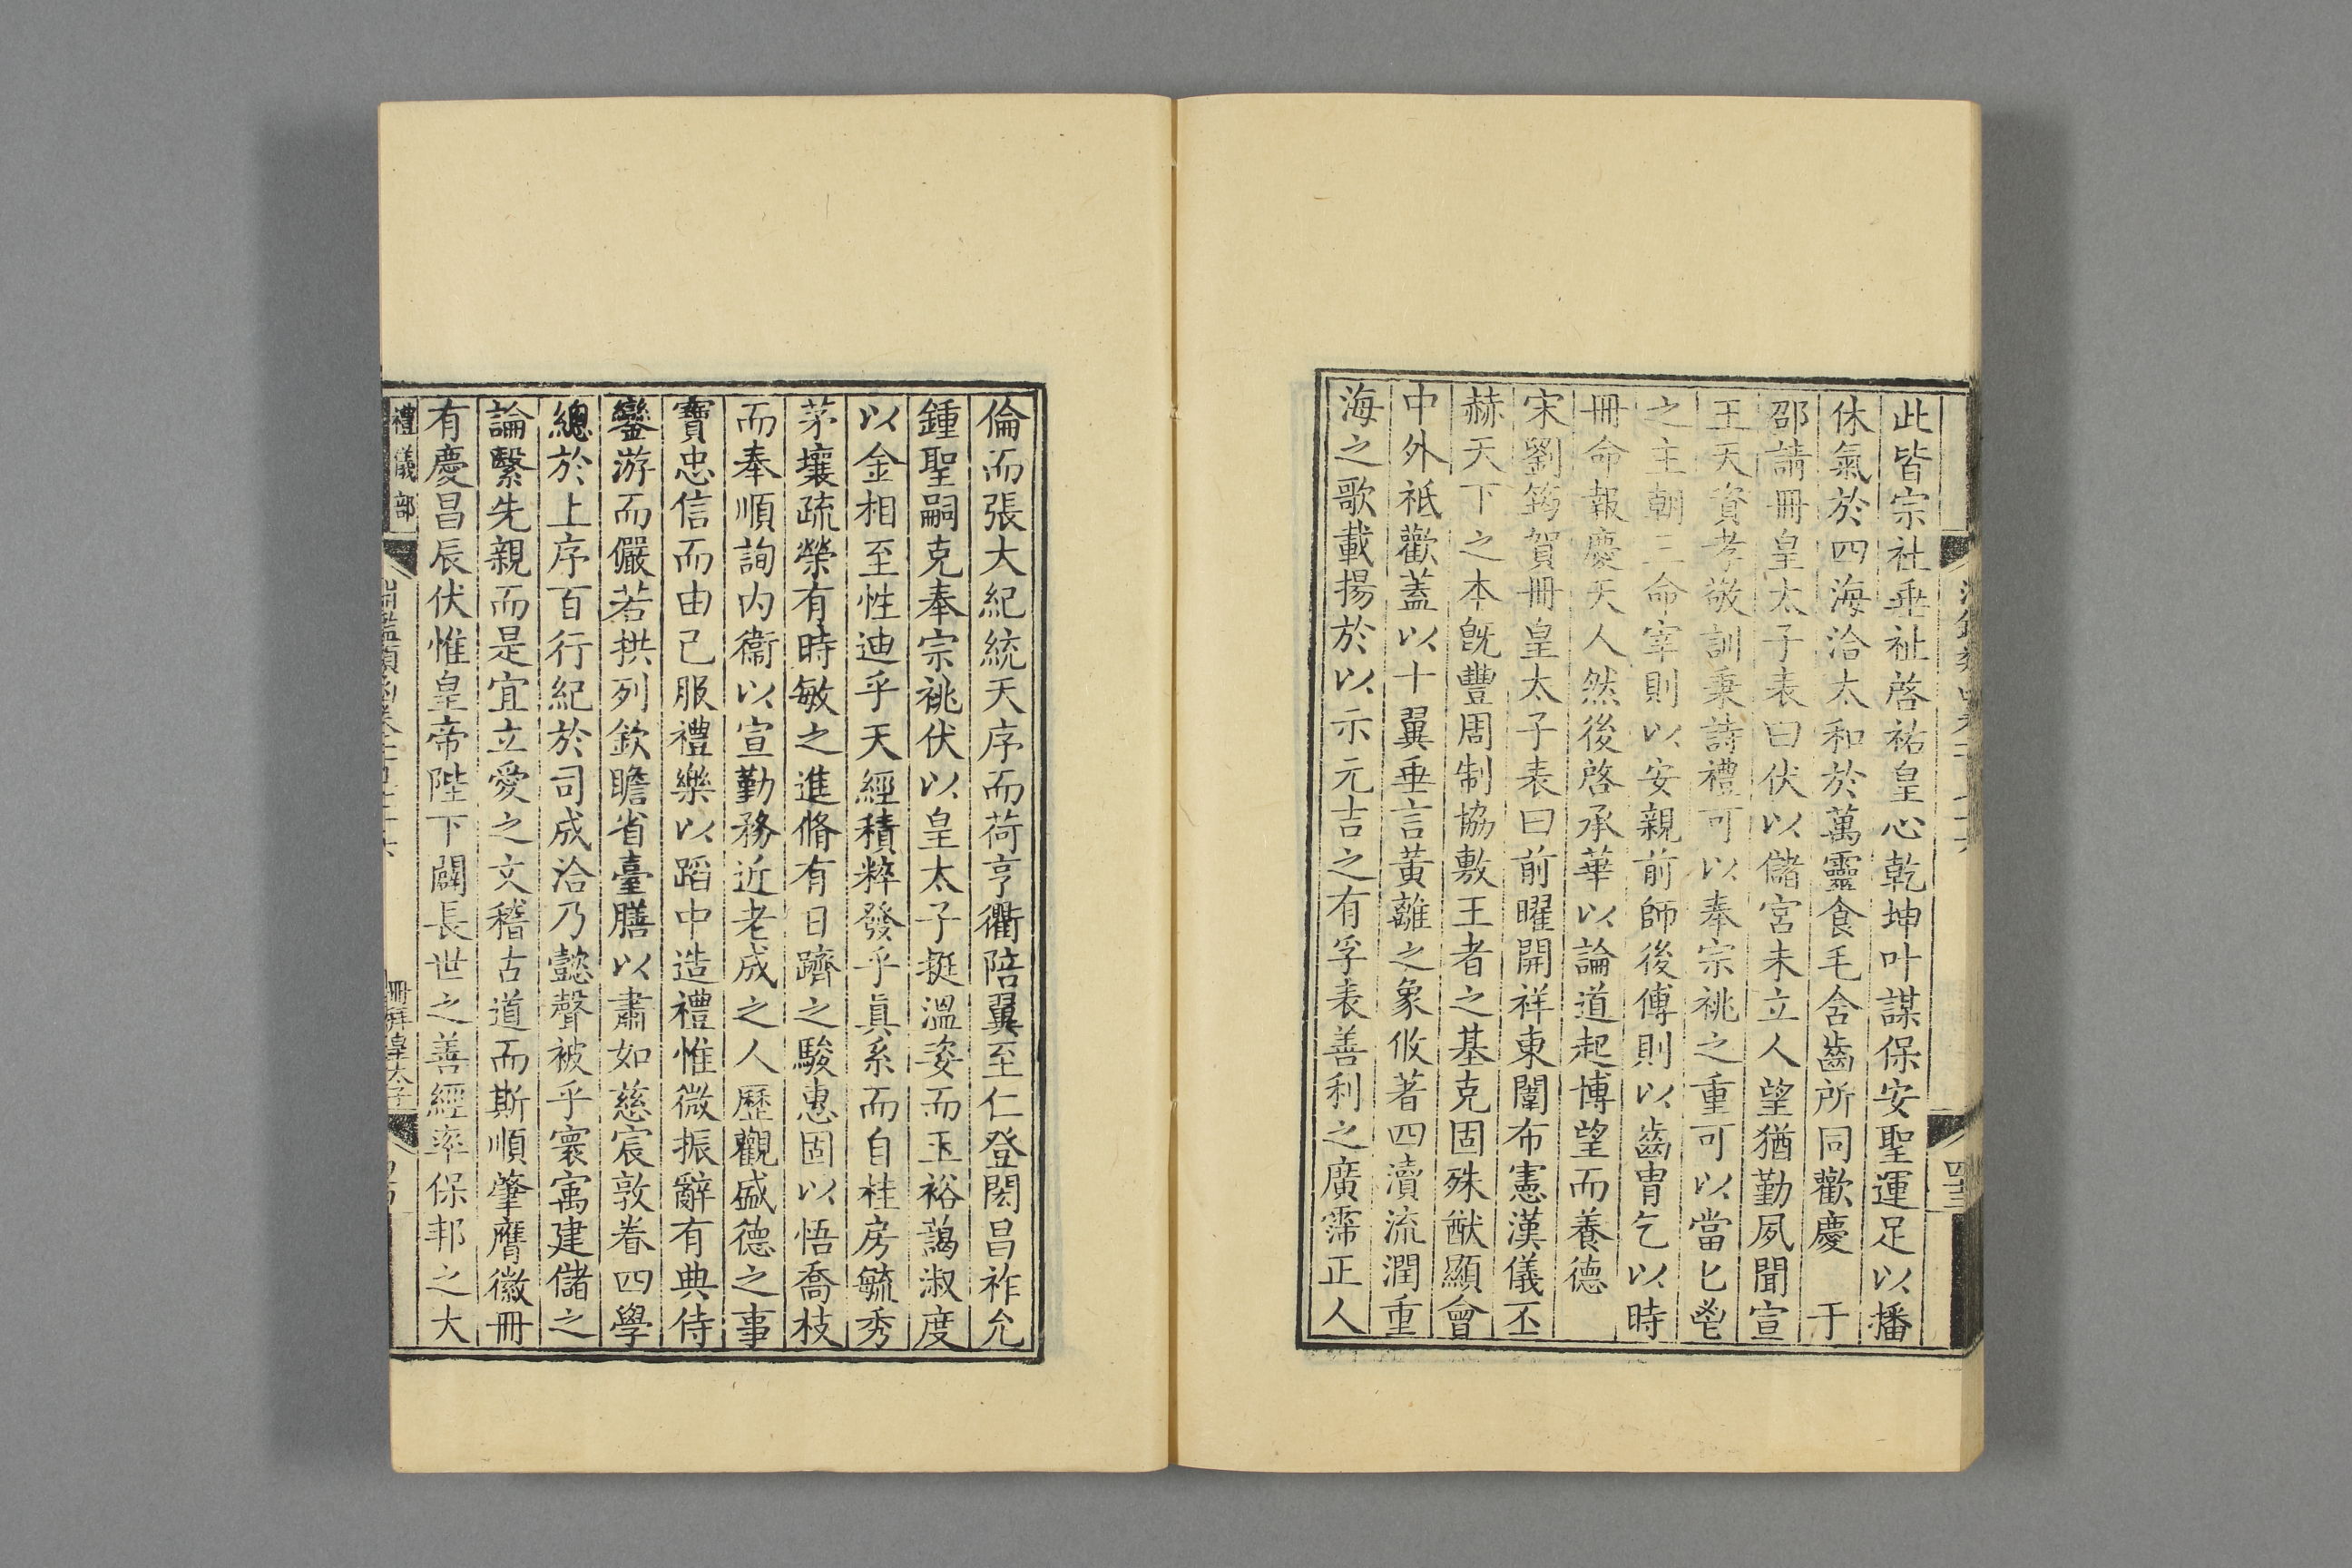 此皆宗社垂祉啓祐皇心乾坤叶謀保安聖運足以播
休氣於四海洽太和於萬靈食毛含齒所同歡慶 于
邵請冊皇太子表曰伏以儲宮未立人望猶勤夙聞宣
王天資孝敬訓秉詩禮可以奉宗祧之重可以當匕鬯
之主朝三命宰則以安親前師後傅則以齒胄乞以時
冊命報慶天人然後啓承華以論道起博望而養德
宋劉筠賀冊皇太子表曰前曜開祥東闈布憲漢儀丕
赫天下之本旣豐周制協敷王者之基克固殊猷顯會
中外祇歡蓋以十翼垂言黃離之象攸著四瀆流潤重
海之歌載揚於以示元吉之有孚表善利之廣霈正人
倫而張大紀統天序而荷亨衢陪翼至仁登閎昌祚允
鍾聖嗣克奉宗祧伏以皇太子挺溫姿而玉裕藹淑度
以金相至性迪乎天經積粹發乎眞系而自桂房毓秀
茅壤疏榮有時敏之進脩有日躋之駿惠固以悟喬枝
而奉順詢內衞以宣勤務近老成之人歷觀盛德之事
寶忠信而由己服禮樂以蹈中造禮惟微振辭有典侍
鑾游而儼若拱列欽瞻省臺膳以肅如慈宸敦眷四學
總於上序百行紀於司成洽乃懿聲被乎寰㝢建儲之
論繫先親而是宜立愛之文稽古道而斯順肇膺徽冊
有慶昌辰伏惟皇帝陛下闢長世之善經率保邦之大
禮儀部
冊拜皇太子